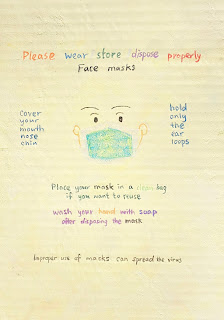 Please wear store dispose properly
Face masks
Cover
your
mouth
nose
chin
hold
only
the
ear
loops
Place your mask in a clean bag
if you want to reuse
wash your hand with soap
after disposing the mask
Improper use of masks can spread the virus